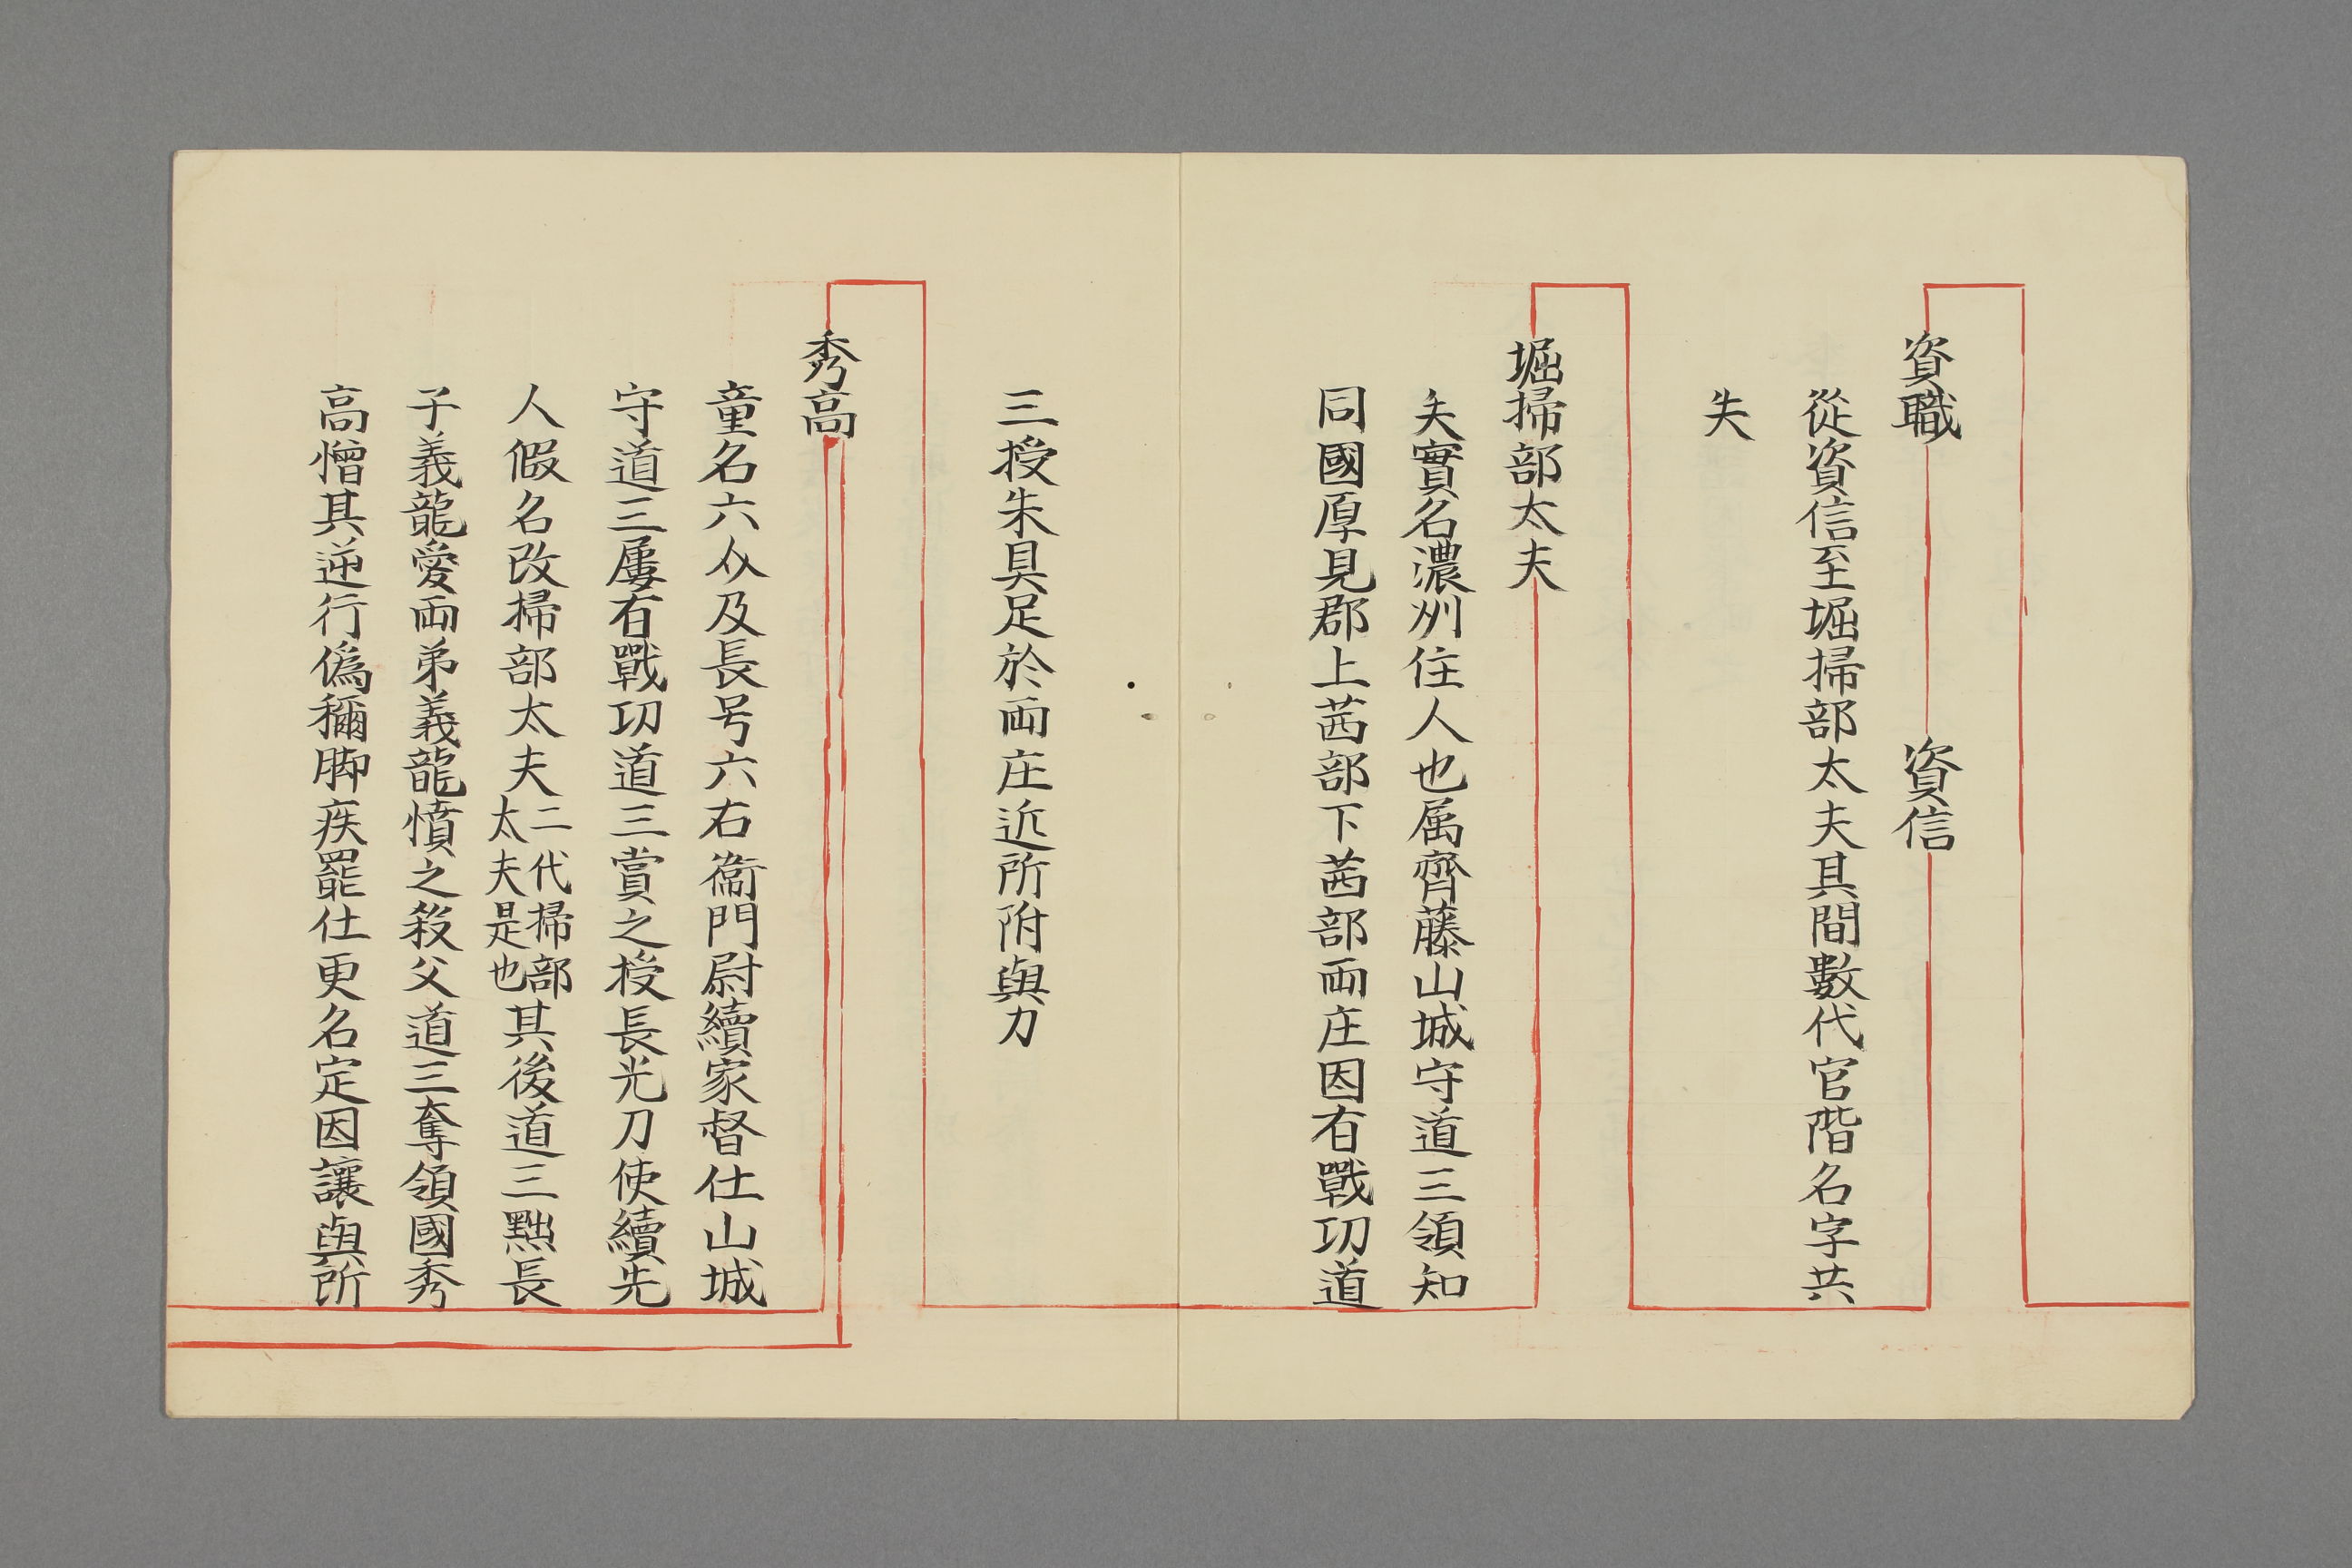 資職 資信
從資信至堀掃部太夫其間數代官階名字共
失
堀掃部太夫
失實名濃州住人也属齊藤山城守道三領知
同國厚見郡上茜部下茜部両庄因有戰功道
三授朱具足於両庄近所附與力
秀高
童名六么及長号六右衞門尉續家督仕山城
守道三屢有戰功道三賞之授長光刀使續先
人假名改掃部太夫二代掃部太夫是也其後道三黜長
子義龍愛両弟義龍憤之殺父道三奪領國秀
高憎其逆行偽稱脚疾罷仕更名定因讓與所